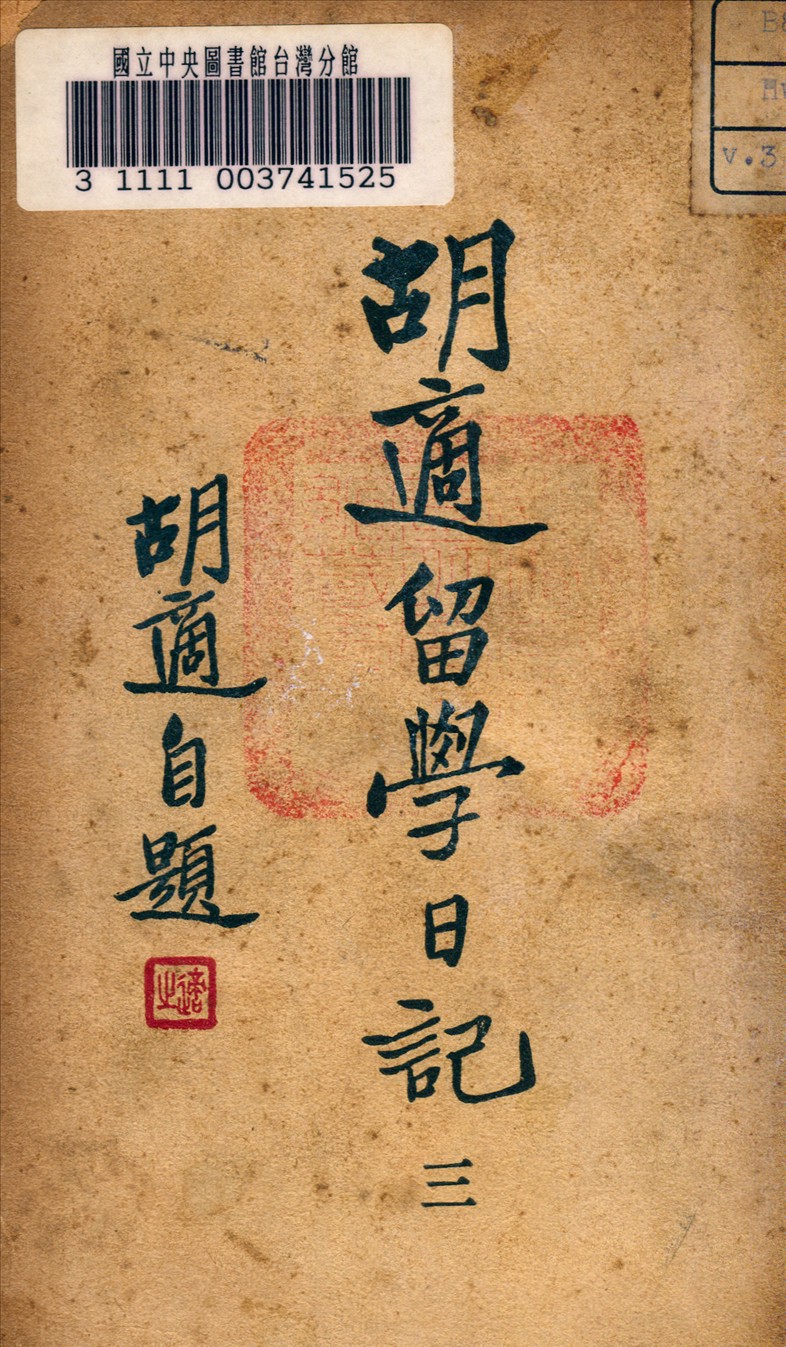 國立中央圖書館台灣分館
3 1111 003741525
v.3
胡適留學日記 三
胡適自題
適之